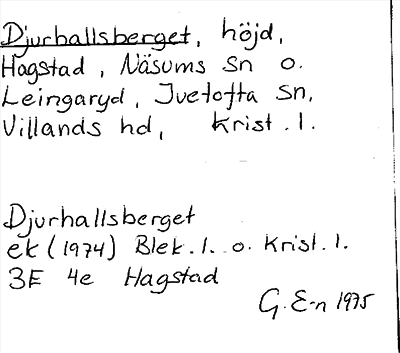 Djurhallsberget, höjd,
Hagstad, Näsums sn o.
Leingaryd, Ivetofta sn,
Villands hd, Krist. l.
Djurhallsberget
ek (1974) Blek. l. o. Krist. l.
3E 4e Hagstad
G. E-n 1975